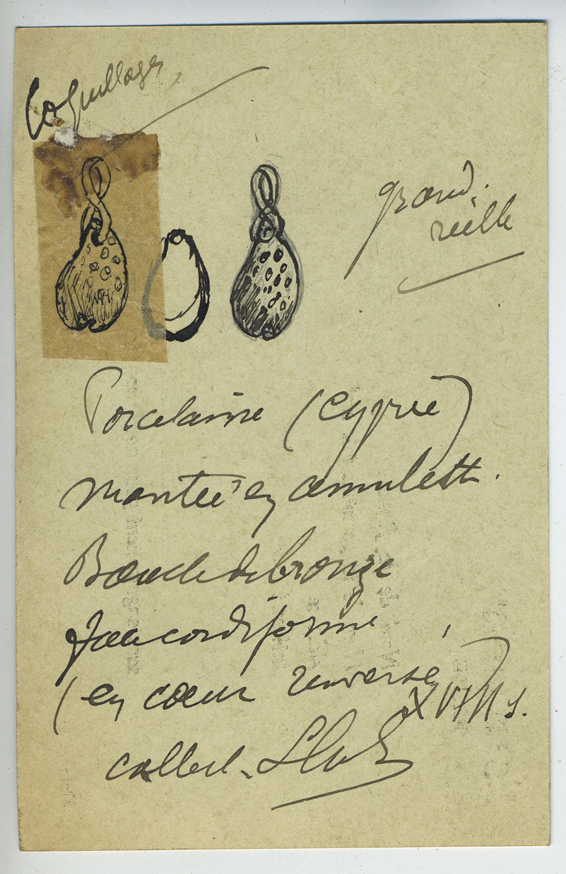 Coquillages
grand.
réelle
Porcelaine (Cyprée)
montée en amulette.
Boucle de bronze
Face cordiforme
(en cœur renversé)
XVIII s.
collect.